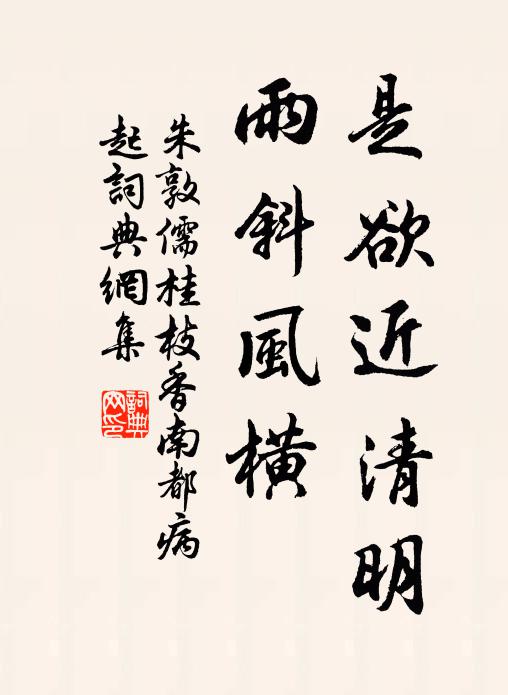 是欲近清明
雨斜風横
朱敦儒桂枝香南都病
起詞典網集
詞典网印